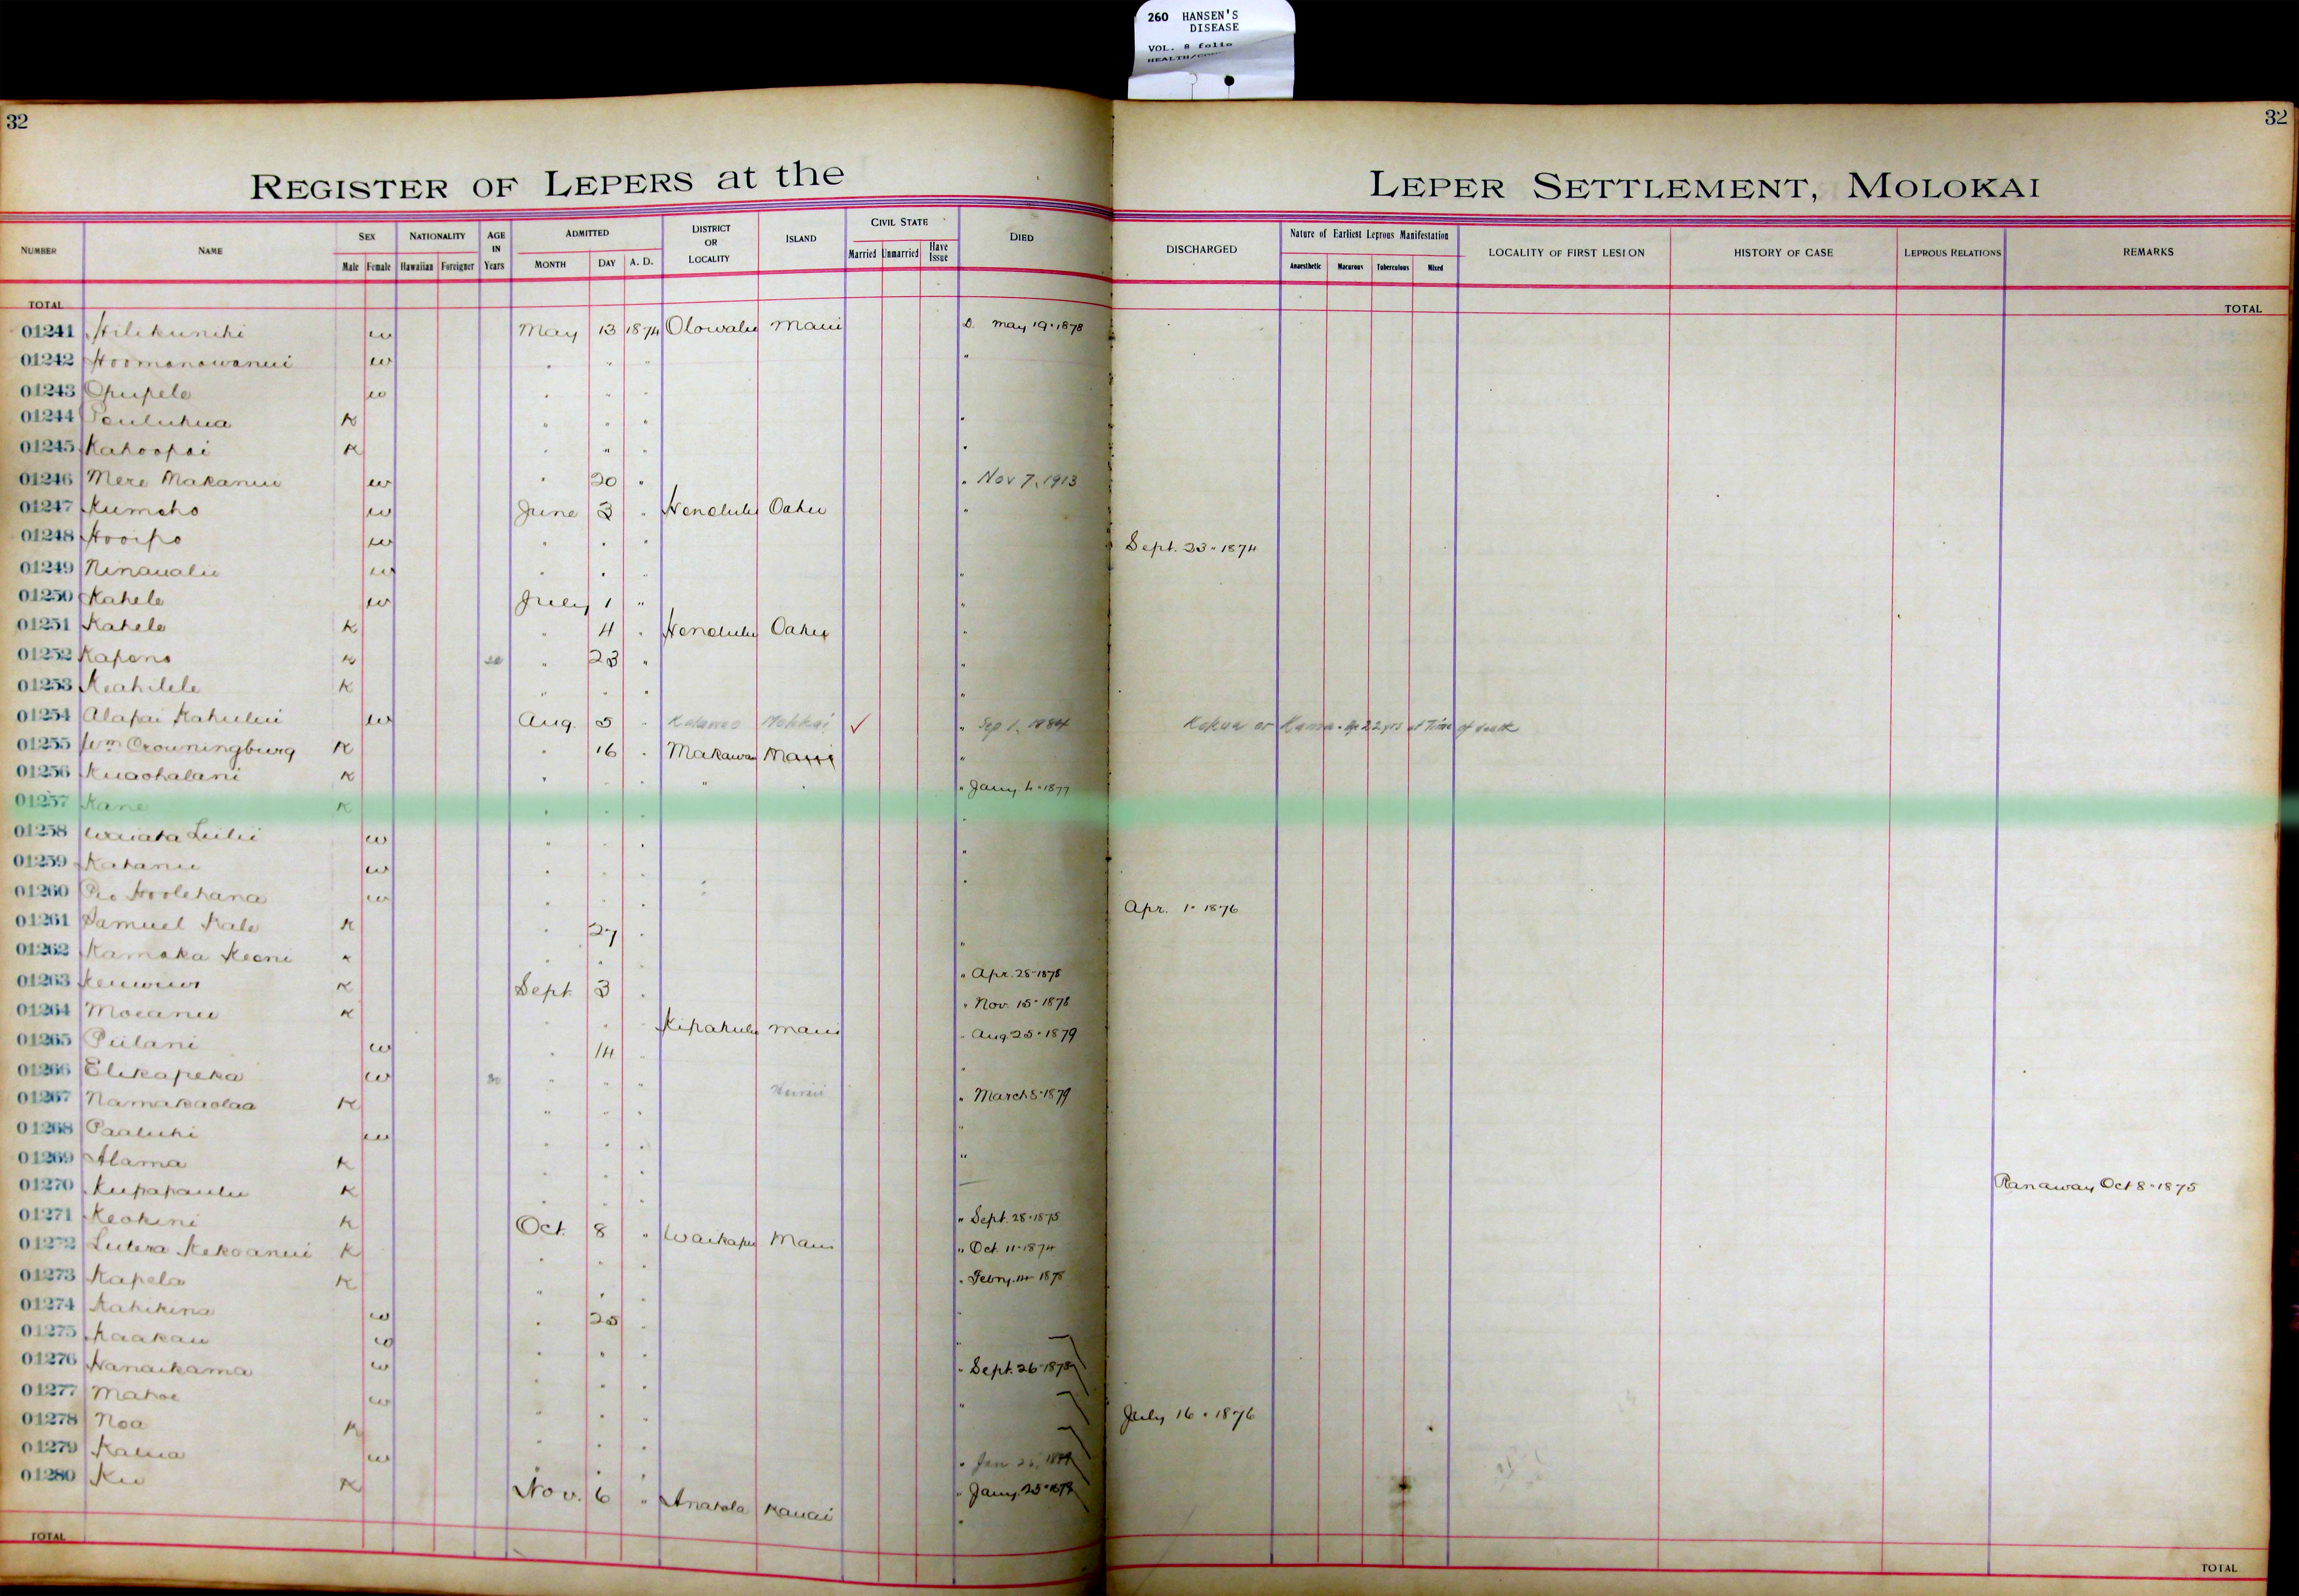 260 HANSEN'S
DISEASE
VOL. 8 folio
32
32
REGISTER OF LEPERS at the
LEPER SETTLEMENT, MOLOKAI
NUMBER NAME SEX Male Female NATIONALITY Hawaiian Foreigner AGE IN Years ADMITTED MONTH DAY A. D. DISTRICT OR LOCALITY ISLAND CIVIL STATE Married Unmarried Have Issue DIED DISCHARGED Nature of Earliest Leprous Manifestation Anaesthetic Macurous Tuberculous Mixed LOCALITY OF FIRST LESION HISTORY OF CASE LEPROUS RELATIONS REMARKS
TOTAL TOTAL
01241 Hilikunihi w May 13 1874 Olowalu Maui D. May 19 · 1878
01242 Hoomanawanui w " " " "
01243 Opupele w " " "
01244 Pauluhua K " " " "
01245 Kahoopai K " " " "
01246 Mere Makanui w " 20 " " Nov 7, 1913
01247 Kumeho w June 3 " Honolulu Oahu "
01248 Hooipo w " " " Sept. 23 · 1874
01249 Ninaualu w " " " "
01250 Kahele w July 1 " "
01251 Kahele K " 4 " Honolulu Oahu "
01252 Kapena K " 23 " "
01253 Keahilele K " " " "
01254 Alapai Kahului w Aug. 5 " Kalawao Molokai ✓ " Sep 1, 1884 Kokua or Kamaa. Age 22 yrs at Time of death
01255 Wm Crowningburg K " 16 " Makawao Maui "
01256 Kuaohalani K " " " " " " Jany. 4 · 1877
01257 Kane K " " " "
01258 Waiata Luilii w " " " "
01259 Kahanu w " " " "
01260 Pio Hoolehana w " " " Apr. 1 · 1876
01261 Samuel Kale K " 27 " "
01262 Kamaka Keoni K " " " " Apr. 28 · 1878
01263 Kenuwu K Sept. 3 " " Nov. 15 · 1878
01264 Moeanu K " " " Kipahulu Maui " Aug 25 · 1879
01265 Piilani w " 14 " "
01266 Elikapeka w 30 " " " Hawaii " March 8 · 1879
01267 Namakaolaa K " " " "
01268 Paaluhi w " " " "
01269 Alama K " " "
01270 Kupapaulu K " " " " Sept. 28 · 1875 Ranaway Oct 8 · 1875
01271 Keokini K Oct. 8 " Waikapu Maui " Oct. 11 · 1874
01272 Lutera Kekoanui K " " " " Febry. 14 · 1878
01273 Kapela K " " " "
01274 Kahikina w " 25 " "
01275 Kaakau w " " " " Sept. 26 · 1878
01276 Nanaikama w " " " "
01277 Mahoe w " " " July 16 · 1876
01278 Noa K " " "
01279 Kalua w " " " " Jany. 25 · 1879
01280 Ku K Nov. 6 " Anahola Kauai "
TOTAL TOTAL